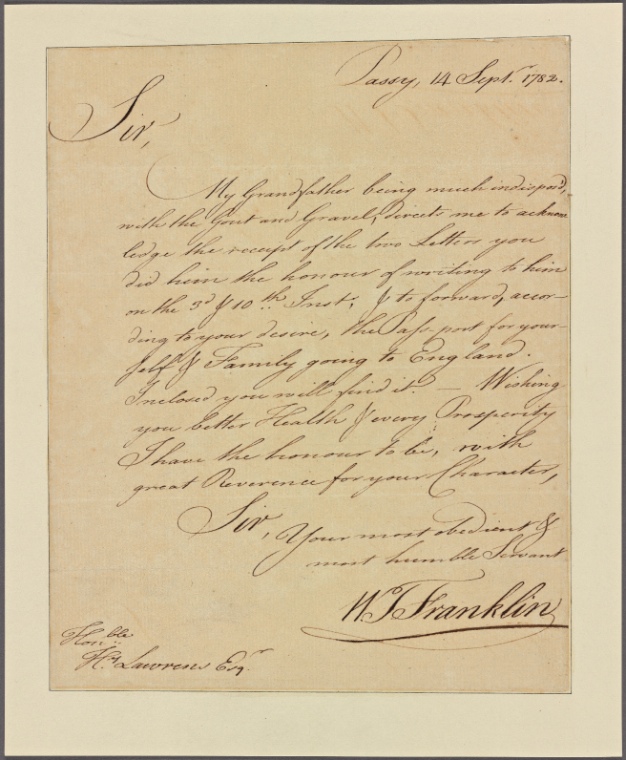 Passy, 14 Sept.r 1782.
Sir,
My Grandfather being much indispos'd,
with the Gout and Gravel, directs me to acknow
ledge the receipt of the two Letters you
did him the honour of writing to him
on the 3.d & 10.th Inst; & to forward, accor-
ding to your desire, the Pass-port for your-
self & Family going to England.
Inclosed you will find it. — Wishing
you better Health & every Prosperity
I have the honour to be, with
great Reverence for your Character,
Sir,
Your most obedient &
most humble Servant
W.T. Franklin
Hon.ble
H.y Lawrens Esq.r